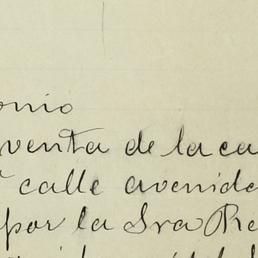 onio
venta de la ca
calle avenida
por la Sra Re